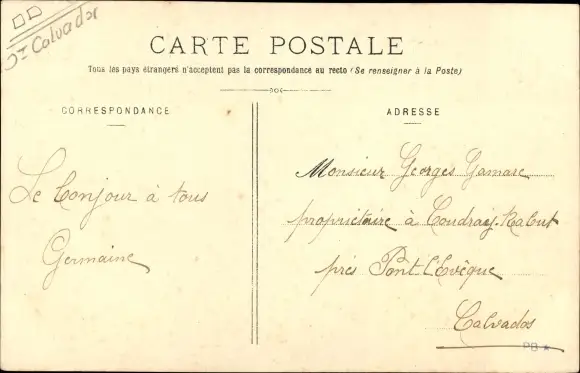 St Calvador
CARTE POSTALE
Tous les pays étrangers n'acceptent pas la correspondance au recto (Se renseigner à la Poste)
CORRESPONDANCE
ADRESSE
Le bonjour à tous
Germaine
Monsieur Georges Gamare
propriétaire à Coudray-Rabut
près Pont-l'Evêque
Calvados
PB